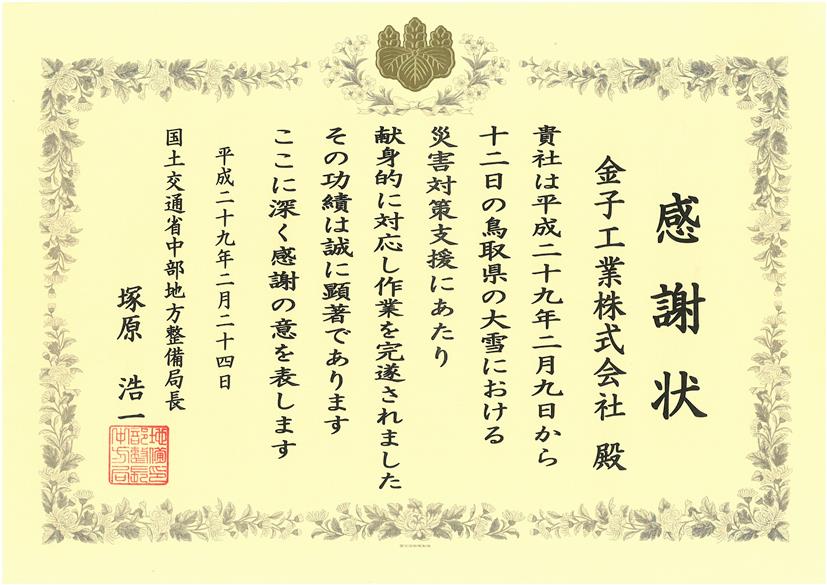 感謝状
金子工業株式会社 殿
貴社は平成二十九年二月九日から
十二日の鳥取県の大雪における
災害対策支援にあたり
献身的に対応し作業を完遂されました
その功績は誠に顕著であります
ここに深く感謝の意を表します
平成二十九年二月二十四日
国土交通省中部地方整備局長
塚原 浩一